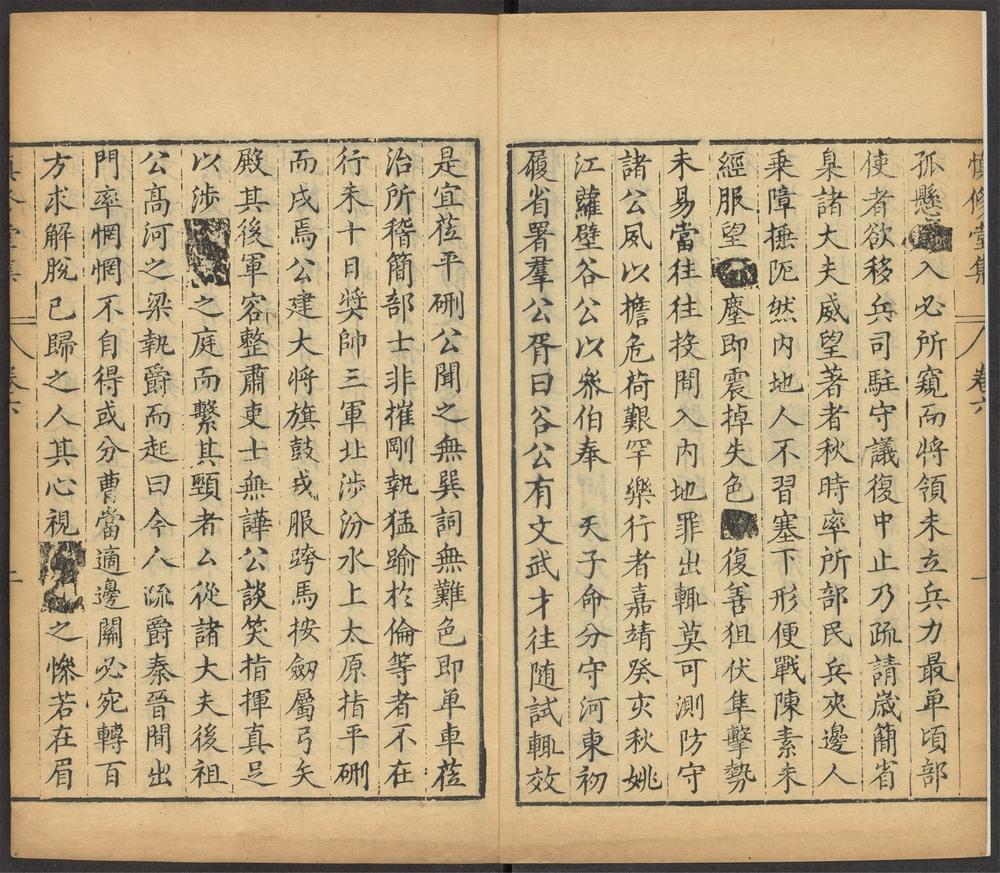 慎修堂集 卷六 一
孤懸入必所窺而將領未立兵力最单頃部
使者欲移兵司駐守議復中止乃疏請歲簡省
臬諸大夫威望著者秋時率所部民兵夾邊人
乗障捶阨然内地人不習塞下形便戰陳素未
經服望塵即震掉失色復善狙伏隼擊勢
未易當往往投間入内地罪出輒莫可測防守
諸公夙以擔危荷艱罕樂行者嘉靖癸亥秋姚
江蘿壁谷公以叅伯奉 天子命分守河東初
履省署羣公胥曰谷公有文武才往随試輒效
是宜莅平硎公聞之無巽詞無難色即单車莅
治所稽簡部士非摧剛執猛踰於倫等者不在
行未十日奬帥三軍北渉汾水上太原指平硎
而戍焉公建大將旗鼓戎服跨馬按劒屬弓矢
殿其後軍容整肅吏士無譁公談笑指揮真足
以渉之庭而繫其頸者公從諸大夫後祖
公高河之梁執爵而起曰今人疏爵秦晉間出
門率惘惘不自得或分曹當適邊關必宛轉百
方求解脫已歸之人其心視之慘若在眉
卷六